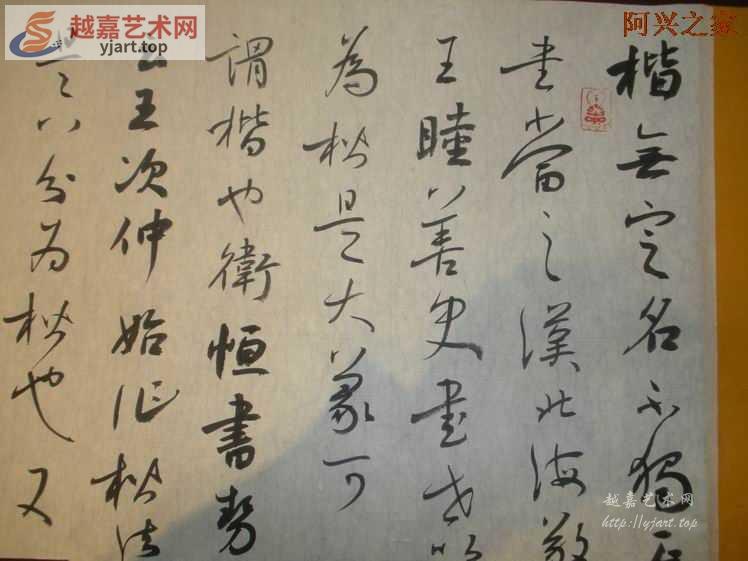 越嘉艺术网
yjart.top
阿兴之家
楷無定名不獨正
書當之漢北海敬
王睦善史書世以
為楷是大篆可
謂楷也衛恒書勢
云王次仲始作楷法
是以八分为楷也又
越嘉艺术网
http://yjart.top